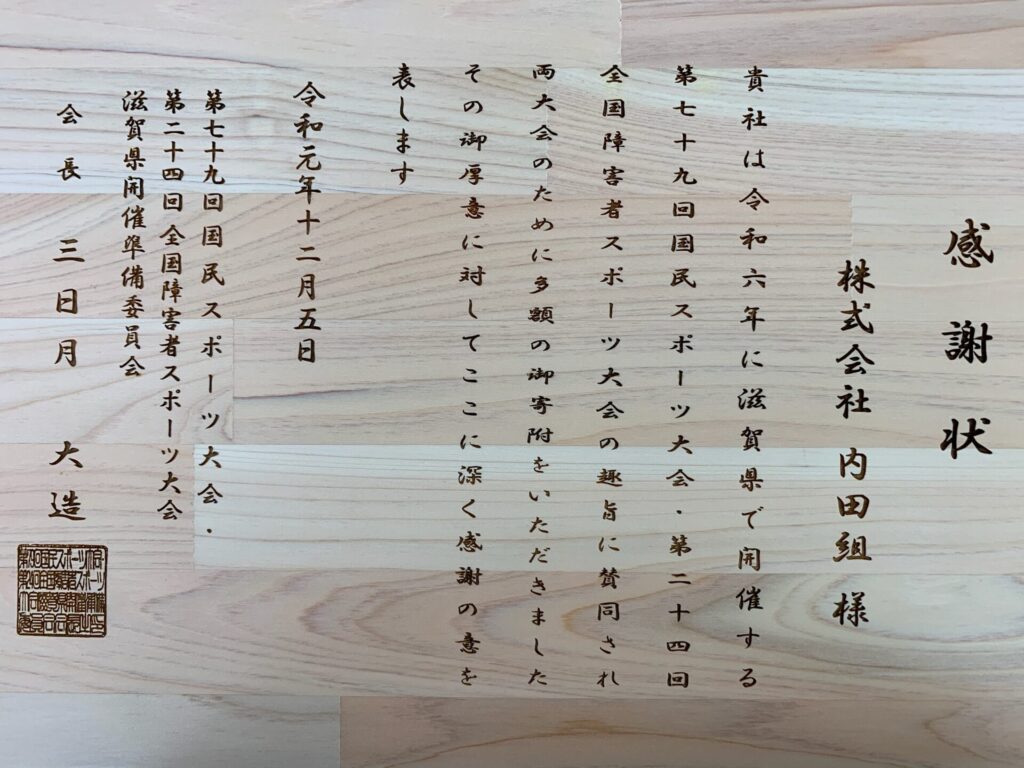 感謝状
株式会社 内田組 様
貴社は令和六年に滋賀県で開催する
第七十九回国民スポーツ大会・第二十四回
全国障害者スポーツ大会の趣旨に賛同され
両大会のために多額の御寄附をいただきました
その御厚意に対してここに深く感謝の意を
表します
令和元年十二月五日
第七十九回国民スポーツ大会・
第二十四回全国障害者スポーツ大会
滋賀県開催準備委員会
会長 三日月 大造